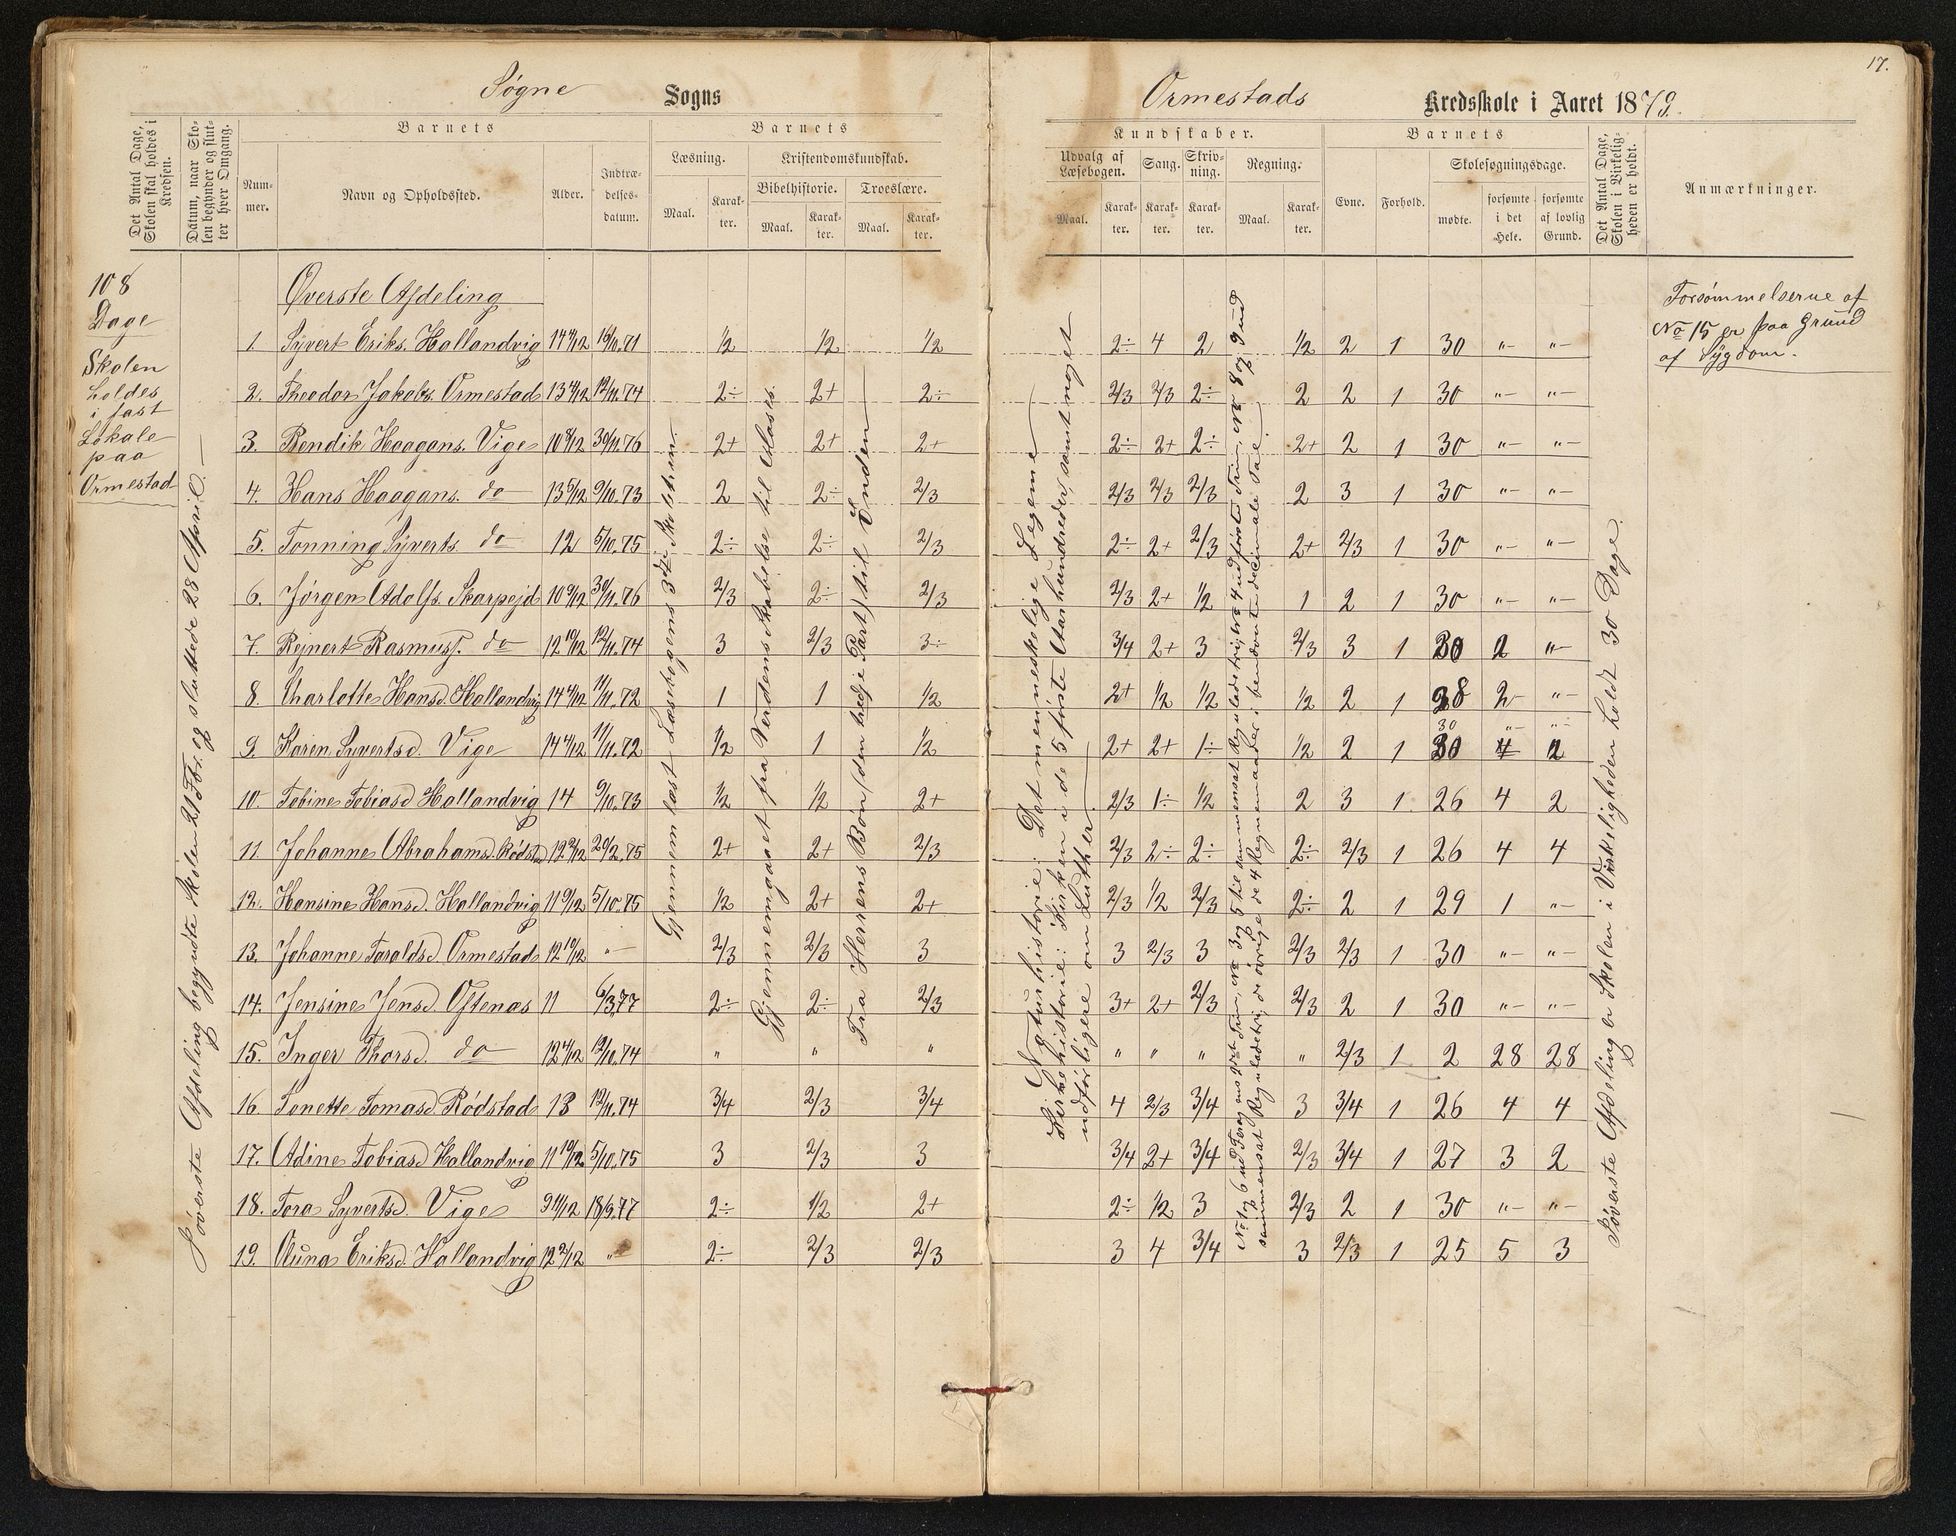 17.
Søgne Sogns
Ormestads Kredsskole i Aaret 1879.
Det Antal Dage, Skolen skal holdes i Kredsen.
Datum, naar Skolen begynder og slutter hver Omgang.
Barnets
Nummer.
Navn og Opholdssted.
Alder.
Indtrædelsesdatum.
Barnets
Læsning.
Maal.
Karakter.
Kristendomskundskab.
Bibelhistorie.
Maal.
Karakter.
Troeslære.
Maal.
Karakter.
Kundskaber.
Udvalg af Læsebogen.
Maal.
Karakter.
Sang.
Karakter.
Skrivning.
Karakter.
Regning.
Maal.
Karakter.
Barnets
Evne.
Forhold.
Skolesøgningsdage.
mødte.
forsømte i det Hele.
forsømte af lovlig Grund.
Det Antal Dage, Skolen i Virkeligheden er holdt.
Anmærkninger.
108
Dage
Skolen
holdes
i fast
Lokale
paa
Ormestad
Øverste Afdeling begyndte Skolen 21 Fbr. og sluttede 28 April.
Øverste Afdeling
1. Syvert Eriks. Hallandvig 14 4/12 16/10.71 1/2 1/2 1/2 2÷ 4 2 1/2 2 1 30 "- "-
2. Theodor Jakobs. Ormestad 13 4/12 12/11.74 2÷ 2+ 2÷ 2/3 2/3 2÷ 2 2 1 30 "- "-
3. Bendik Haagans. Vige 10 8/12 30/11.76 2+ 2+ 2+ 2÷ 2+ 2÷ 2+ 2 1 30 "- "-
4. Hans Haagans. do 13 5/12 9/10.73 2 2÷ 2/3 2/3 2/3 2/3 2 3 1 30 "- "-
5. Tønning Syverts. do 12 5/10.75 2÷ 2÷ 2/3 2÷ 2+ 2/3 2+ 2/3 1 30 "- "-
6. Jørgen Adolfs. Skarpejd 10 9/12 30/11.76 2/3 2÷ 2/3 2/3 2+ 1/2 1 2 1 30 "- "-
7. Rejnert Rasmuss. do 12 10/12 12/11.74 3 2/3 3÷ 3/4 2+ 3 2/3 3 1 30 2 "-
8. Charlotte Hansd. Hallandvig 14 4/12 11/11.72 1 1 1/2 2+ 1/2 1/2 1/2 2 1 28 2 "-
30 "- "-
9. Karen Syvertsd. Vige 14 4/12 11/11.72 1/2 1 1/2 2+ 2+ 1÷ 1/2 2 1 30 4 2
10. Tobine Tobiasd. Hallandvig 14 9/10.73 1/2 1/2 2+ 2/3 1÷ 1/2 2 3 1 26 4 2
11. Johanne Abrahamsd. Rødstad 12 2/12 20/2.75 2+ 2+ 2/3 2/3 2÷ 2÷ 2÷ 2/3 1 26 4 4
12. Hansine Hansd. Hallandvig 11 9/12 5/10.75 1/2 2+ 2+ 2/3 1/2 2/3 2÷ 2 1 29 1 "-
13. Johanne Taraldsd. Ormestad 12 10/12 "- 2/3 2/3 3 3 2/3 3 2/3 2/3 1 30 "- "-
14. Jensine Jensd. Oftenæs 11 6/3.77 2÷ 2÷ 2/3 3+ 2+ 2/3 2/3 2 1 30 "- "-
15. Inger Thorsd. do 12 4/12 12/10.74 " " " " " " " 2/3 1 2 28 28
16. Lonette Tomasd. Rødstad 13 12/11.74 3/4 2/3 3/4 4 2/3 3/4 3 3/4 1 26 4 4
17. Adine Tobiasd. Hallandvig 11 10/12 5/10.75 3 2/3 3 3/4 2+ 3/4 2/3 3/4 1 27 3 2
18. Tora Syvertsd. Vige 9 11/12 18/9.77 2÷ 1/2 2+ 2÷ 1/2 3 2/3 2 1 30 "- "-
19. Auna Eriksd. Hallandvig 12 2/12 "- 2÷ 2/3 2/3 3 4 3/4 3 2/3 1 25 5 3
Gjennemlæst Læsebogens 3die Skoletrin.
Gjennemgaaet fra Verdens Skabelse til Moses.
Fra Herrens Bøn (den tredje Part) til Enden
Naturhistorie: Det menneskelige Legeme
Kirkehistorie: Kirken i de 5 første Aarhundreder, samt noget
udførligere om Luther
No 1 og 6
sammensat Reguladetri, de øvrige de 4 Regnemaader i benævnte decimale Tal.
Øverste Afdeling er Skolen i Virkeligheden holdt 30 Dage.
Forsømmelserne af
No 15 er paa Grund
af Sygdom.